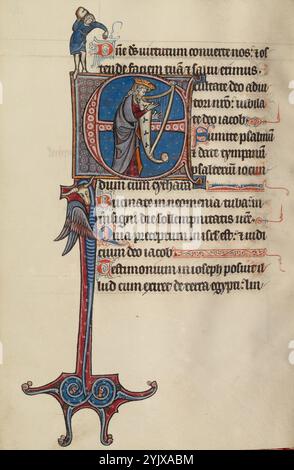 Dñe ds uirtutum conuerte nos: & os
tende faciem tuã & salui erimus.
Exultate deo adiu
tori nro: iubila
te deo iacob.
Sumite psalmũ
& date tympanũ
psalteriũ iocun
dum cum cythara
Bucinate in neomenia tuba: in
insigni die sollempnitatis
Quia preceptum in isrl est: & iudi
cium deo iacob
Testimonium in ioseph posuit il
lud cum exiret de terra egypti: lin
Alamy
2YJXABM